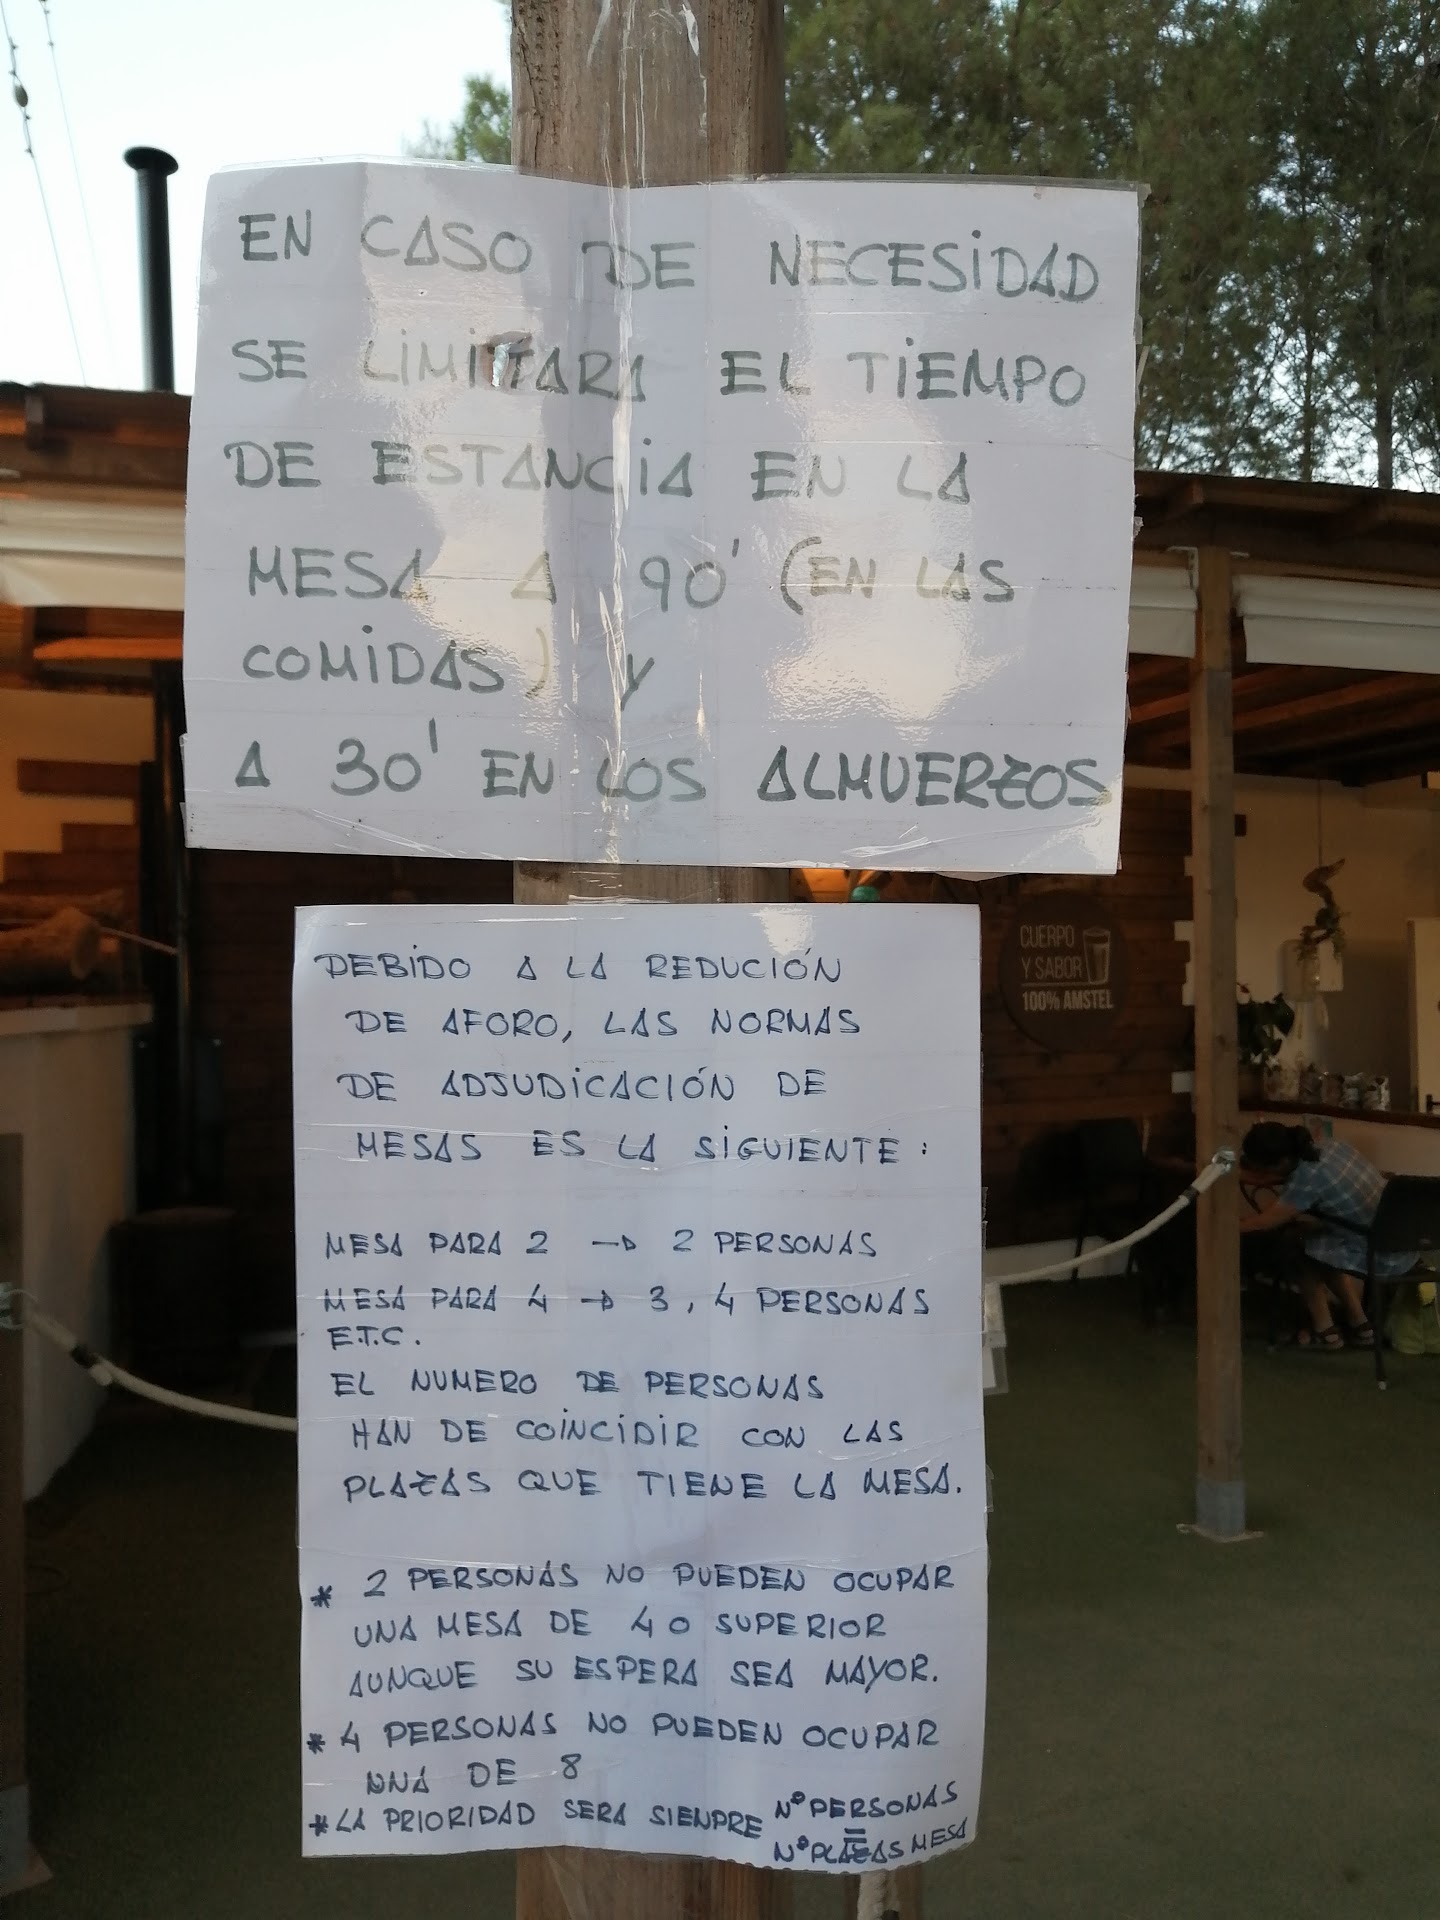 EN CASO DE NECESIDAD
SE LIMITARA EL TIEMPO
DE ESTANCIA EN LA
MESA A 90' (EN LAS
COMIDAS) Y
A 30' EN LOS ALMUERZOS
DEBIDO A LA REDUCIÓN
DE AFORO, LAS NORMAS
DE ADJUDICACIÓN DE
MESAS ES LA SIGUIENTE:
MESA PARA 2 → 2 PERSONAS
MESA PARA 4 → 3, 4 PERSONAS
E.T.C.
EL NUMERO DE PERSONAS
HAN DE COINCIDIR CON LAS
PLAZAS QUE TIENE LA MESA.
* 2 PERSONAS NO PUEDEN OCUPAR
UNA MESA DE 4 O SUPERIOR
AUNQUE SU ESPERA SEA MAYOR.
* 4 PERSONAS NO PUEDEN OCUPAR
UNA DE 8
* LA PRIORIDAD SERA SIENPRE Nº PERSONAS
=
Nº PLAZAS MESA
CUERPO
Y SABOR
100% AMSTEL